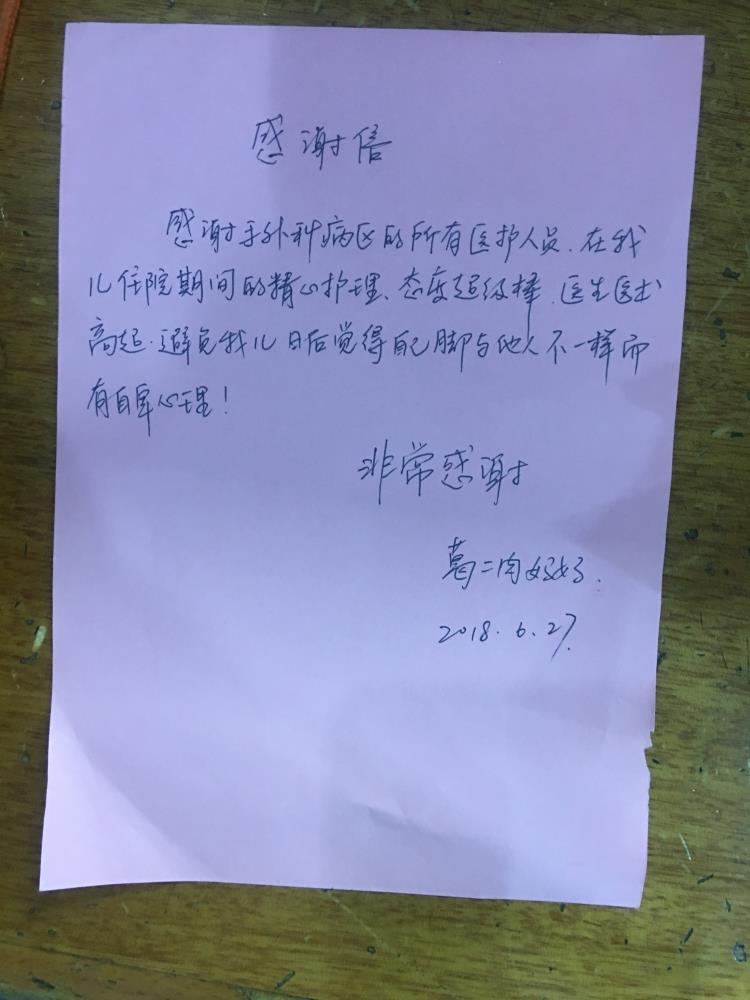 感谢信
感谢手外科病区的所有医护人员.在我
儿住院期间的精心护理、态度超级棒.医生医术
高超.避免我儿日后觉得自己脚与他人不一样而
有自卑心理!
非常感谢
葛二肉妈妈.
2018.6.27.